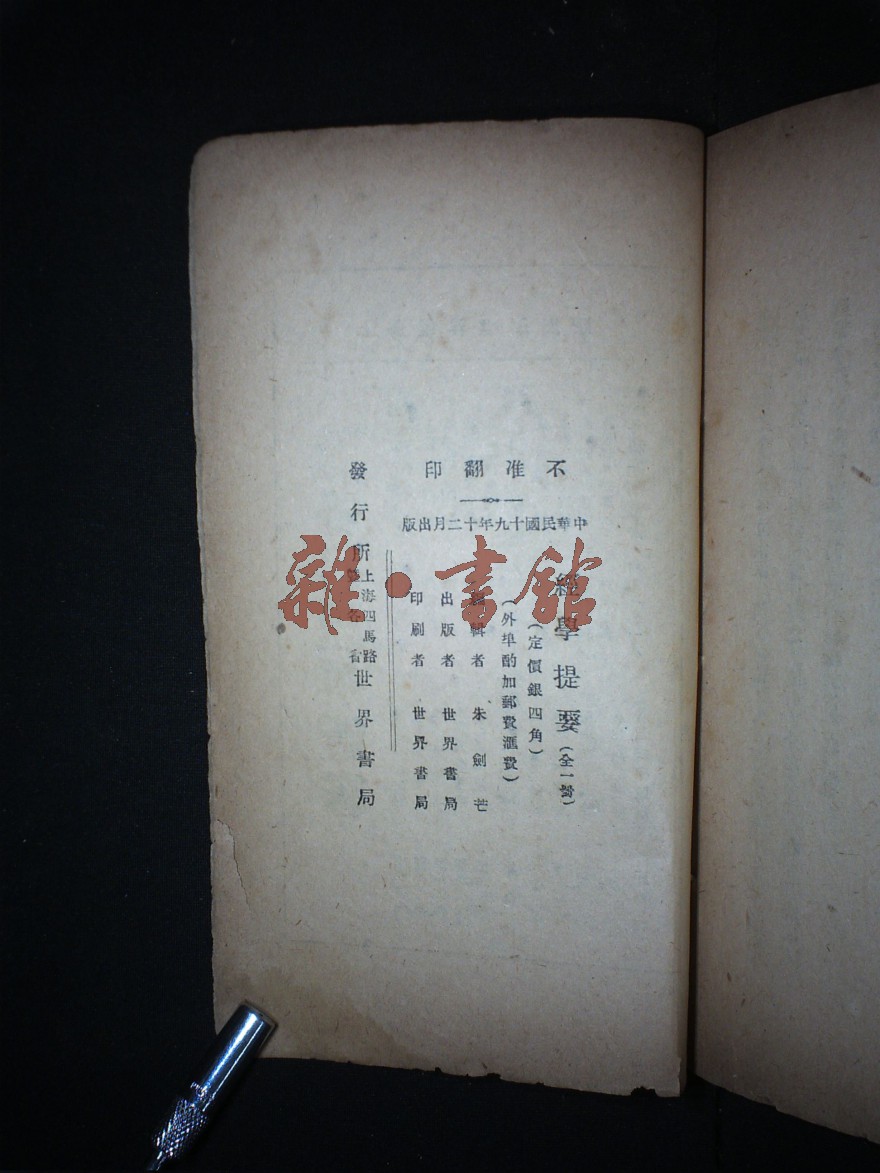 不准翻印
中華民國十九年十二月出版
經學提要(全一冊)
(定價銀四角)
(外埠酌加郵費滙費)
編輯者 朱劍芒
出版者 世界書局
印刷者 世界書局
發行所 上海四馬路 各省 世界書局
雜·書館